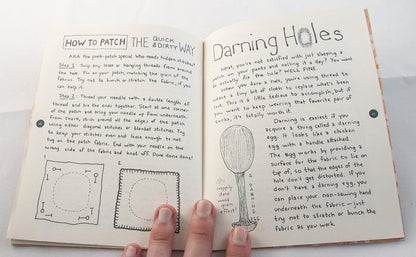 HOW TO PATCH THE QUICK & DIRTY WAY
AKA the punk-patch special. Who needs hidden stitches?
Step 1: Snip any loose or hanging threads from around
the hole. Pin on your patch, matching the grain of the
fabric. Try not to bunch or stretch the fabric, if you
can help it.
Step 2: Thread your needle with a double length of
thread and tie the ends together. Start at one corner
of your patch and bring your needle up from underneath.
From there, stitch around all the edges of the patch
using either diagonal stitches or blanket stitches. Try
to keep your stitches even and loose enough to not
tug on the patch fabric. End with your needle on the
wrong side of the fabric and knot off. Dang done darnit!
1.
2.
Darning Holes
What, you're not satisfied with just slapping a
patch on your pants and calling it a day? You want
to actually fix the hole? WELL FINE.
When you darn a hole, you're using thread to
weave a tiny bit of cloth to replace what's been
lost. This is a little tedious to accomplish, but if
you want to keep wearing that favorite pair of
socks, it's totally worth it.
Darning is easiest if you
acquire a thing called a darning
egg. It looks like a chicken
egg with a handle attached.
The egg works by providing a
surface for the fabric to lie on
top of, so that the edges of the
hole don't get distorted. If you
don't have a darning egg, you
can place your non-sewing hand
underneath the fabric — just
try not to stretch or bunch the
fabric as you work.
DARNING